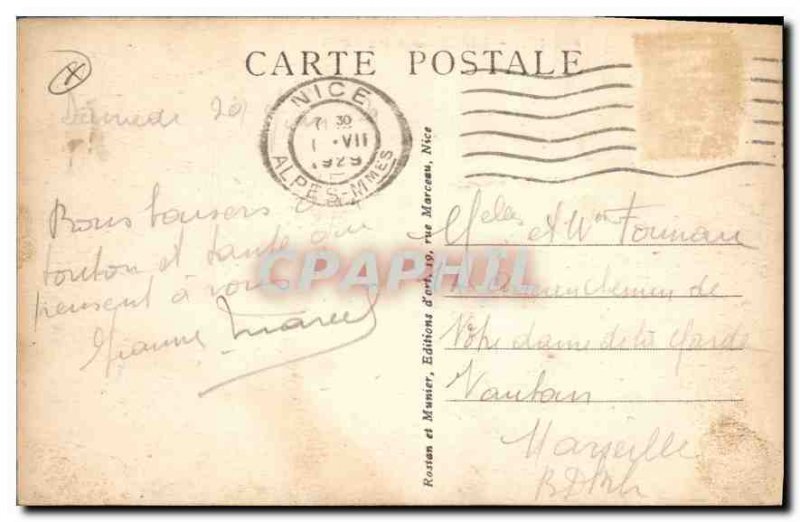 CARTE POSTALE
NICE
7 30
1 · VII
1929
ALPES-MMES
Bons baisers de
tonton et tante qui
pensent à vous
Jeanne Marcel
Rostan et Munier, Editions d'art, 19, rue Marceau, Nice
et Mme
Chemin de
Notre dame de la Garde
Vauban
Marseille
BDRh
CPAPHIL